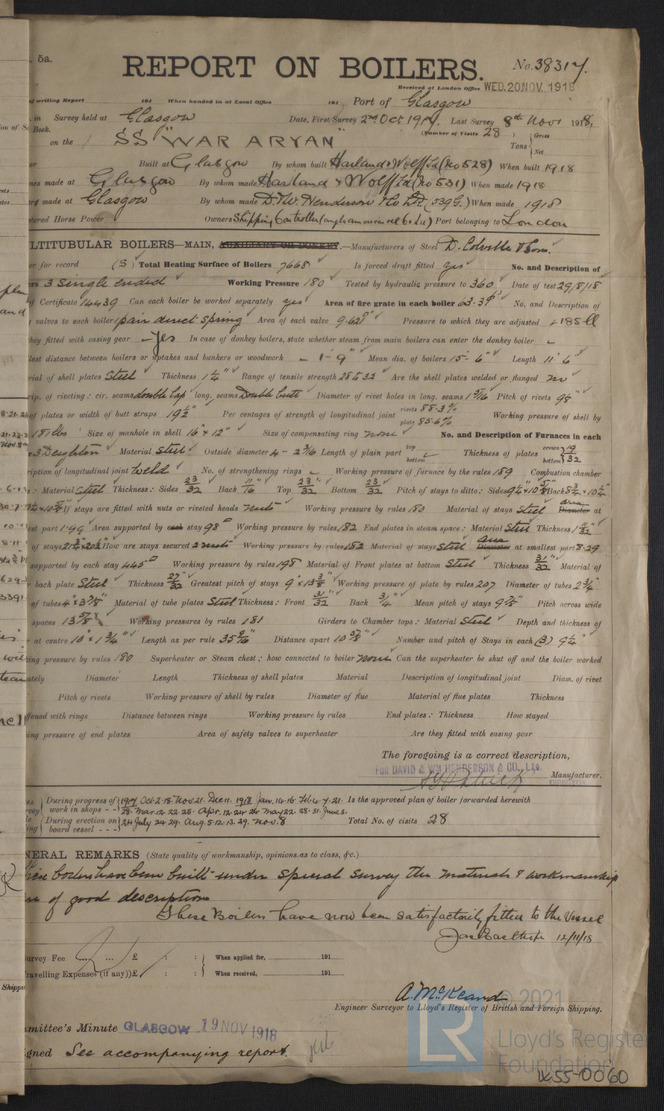 5a.
REPORT ON BOILERS.
No. 38317.
Received at London Office WED. 20 NOV. 1918
of writing Report 191 When handed in at Local Office 191 Port of Glasgow
in Survey held at Glasgow Date, First Survey 2nd Oct 1917 Last Survey 8th Nov 1918
Book. (Number of Visits 28)
on the SS "WAR ARYAN" Tons Gross Net
Built at Glasgow By whom built Harland & Wolff Ld (No 528) When built 1918
made at Glasgow By whom made Harland & Wolff Ld (No 531) When made 1918
made at Glasgow By whom made D. & W. Henderson & Co Ld. (539G) When made 1918
Horse Power Owners Shipping Controller Port belonging to London
LTITUBULAR BOILERS—MAIN, AUXILIARY OR DONKEY.—Manufacturers of Steel D. Colville & Sons.
for record (S) Total Heating Surface of Boilers 7668 Is forced draft fitted yes No. and Description of
3 Single ended Working Pressure 180 Tested by hydraulic pressure to 360 Date of test 29/8/18
Certificate 14439 Can each boiler be worked separately yes Area of fire grate in each boiler 63.39 No. and Description of
valves to each boiler pair direct spring Area of each valve 9.62 Pressure to which they are adjusted 185 lb
they fitted with easing gear yes In case of donkey boilers, state whether steam from main boilers can enter the donkey boiler -
distance between boilers or uptakes and bunkers or woodwork 1-9" Mean dia. of boilers 15-6" Length 11-6"
of shell plates Steel Thickness 1¼" Range of tensile strength 28 & 32 Are the shell plates welded or flanged no
of riveting: cir. seams double lap long. seams Double butt Diameter of rivet holes in long. seams 1 5/16 Pitch of rivets
of plates or width of butt straps 19½" Per centages of strength of longitudinal joint rivets 88.3% plate 85.6% Working pressure of shell by
181 lbs Size of manhole in shell 16" × 12" Size of compensating ring none No. and Description of Furnaces in each
3 Deighton Material Steel Outside diameter 4-2 Length of plain part top bottom Thickness of plates crown bottom 19/32
of longitudinal joint Weld No. of strengthening rings - Working pressure of furnace by the rules 189 Combustion chamber
Material Steel Thickness: Sides 23/32 Back 11/16 Top 23/32 Bottom 23/32 Pitch of stays to ditto: Sides Back
If stays are fitted with nuts or riveted heads nuts Working pressure by rules 180 Material of stays Steel area Diameter at
part Area supported by each stay 98 Working pressure by rules 182 End plates in steam space: Material Steel Thickness
of stays How are stays secured 2 nuts Working pressure by rules 182 Material of stays Steel Area Diameter at smallest part 8.29
supported by each stay 445 Working pressure by rules 198 Material of Front plates at bottom Steel Thickness 31/32 Material of
back plate Steel Thickness 27/32 Greatest pitch of stays 9" × 13 Working pressure of plate by rules 207 Diameter of tubes 2¾"
of tubes Material of tube plates Steel Thickness: Front 31/32 Back ¾" Mean pitch of stays Pitch across wide
spaces Working pressures by rules 181 Girders to Chamber tops: Material Steel Depth and thickness of
at centre 10 × 1¾" Length as per rule Distance apart Number and pitch of Stays in each (3) 9¼"
pressure by rules 180 Superheater or Steam chest; how connected to boiler none Can the superheater be shut off and the boiler worked
Diameter Length Thickness of shell plates Material Description of longitudinal joint Diam. of rivet
Pitch of rivets Working pressure of shell by rules Diameter of flue Material of flue plates Thickness
with rings Distance between rings Working pressure by rules End plates: Thickness How stayed
pressure of end plates Area of safety valves to superheater Are they fitted with easing gear
The foregoing is a correct description,
FOR DAVID & WM HENDERSON & CO., LTD.
Manufacturer.
During progress of work in shops - - 1917 Oct. 2. 18. Nov. 21. Dec. 11. 1918 Jan. 14. 16. Feb. 4. 7. 21. Mar. 12. 22. 25. Apr. 12. 24. 26. May 22. 28. 31. June 3. Is the approved plan of boiler forwarded herewith
During erection on board vessel - - - 24 July 24. 29. Aug. 5. 12. 13. 29. Nov. 8 Total No. of visits 28
NERAL REMARKS (State quality of workmanship, opinions as to class, &c.)
These boilers have been built under special survey the materials & workmanship
of good description
These Boilers have now been satisfactorily fitted to the Vessel
12/11/18
Survey Fee ... ... £ : : When applied for, 191
Travelling Expenses (if any) £ : : When received, 191
A. McKeand
Engineer Surveyor to Lloyd's Register of British and Foreign Shipping.
mmittee's Minute GLASGOW 19 NOV 1918
gned See accompanying report.
© 2021
LR
Lloyd's Register
Foundation
W55-0060